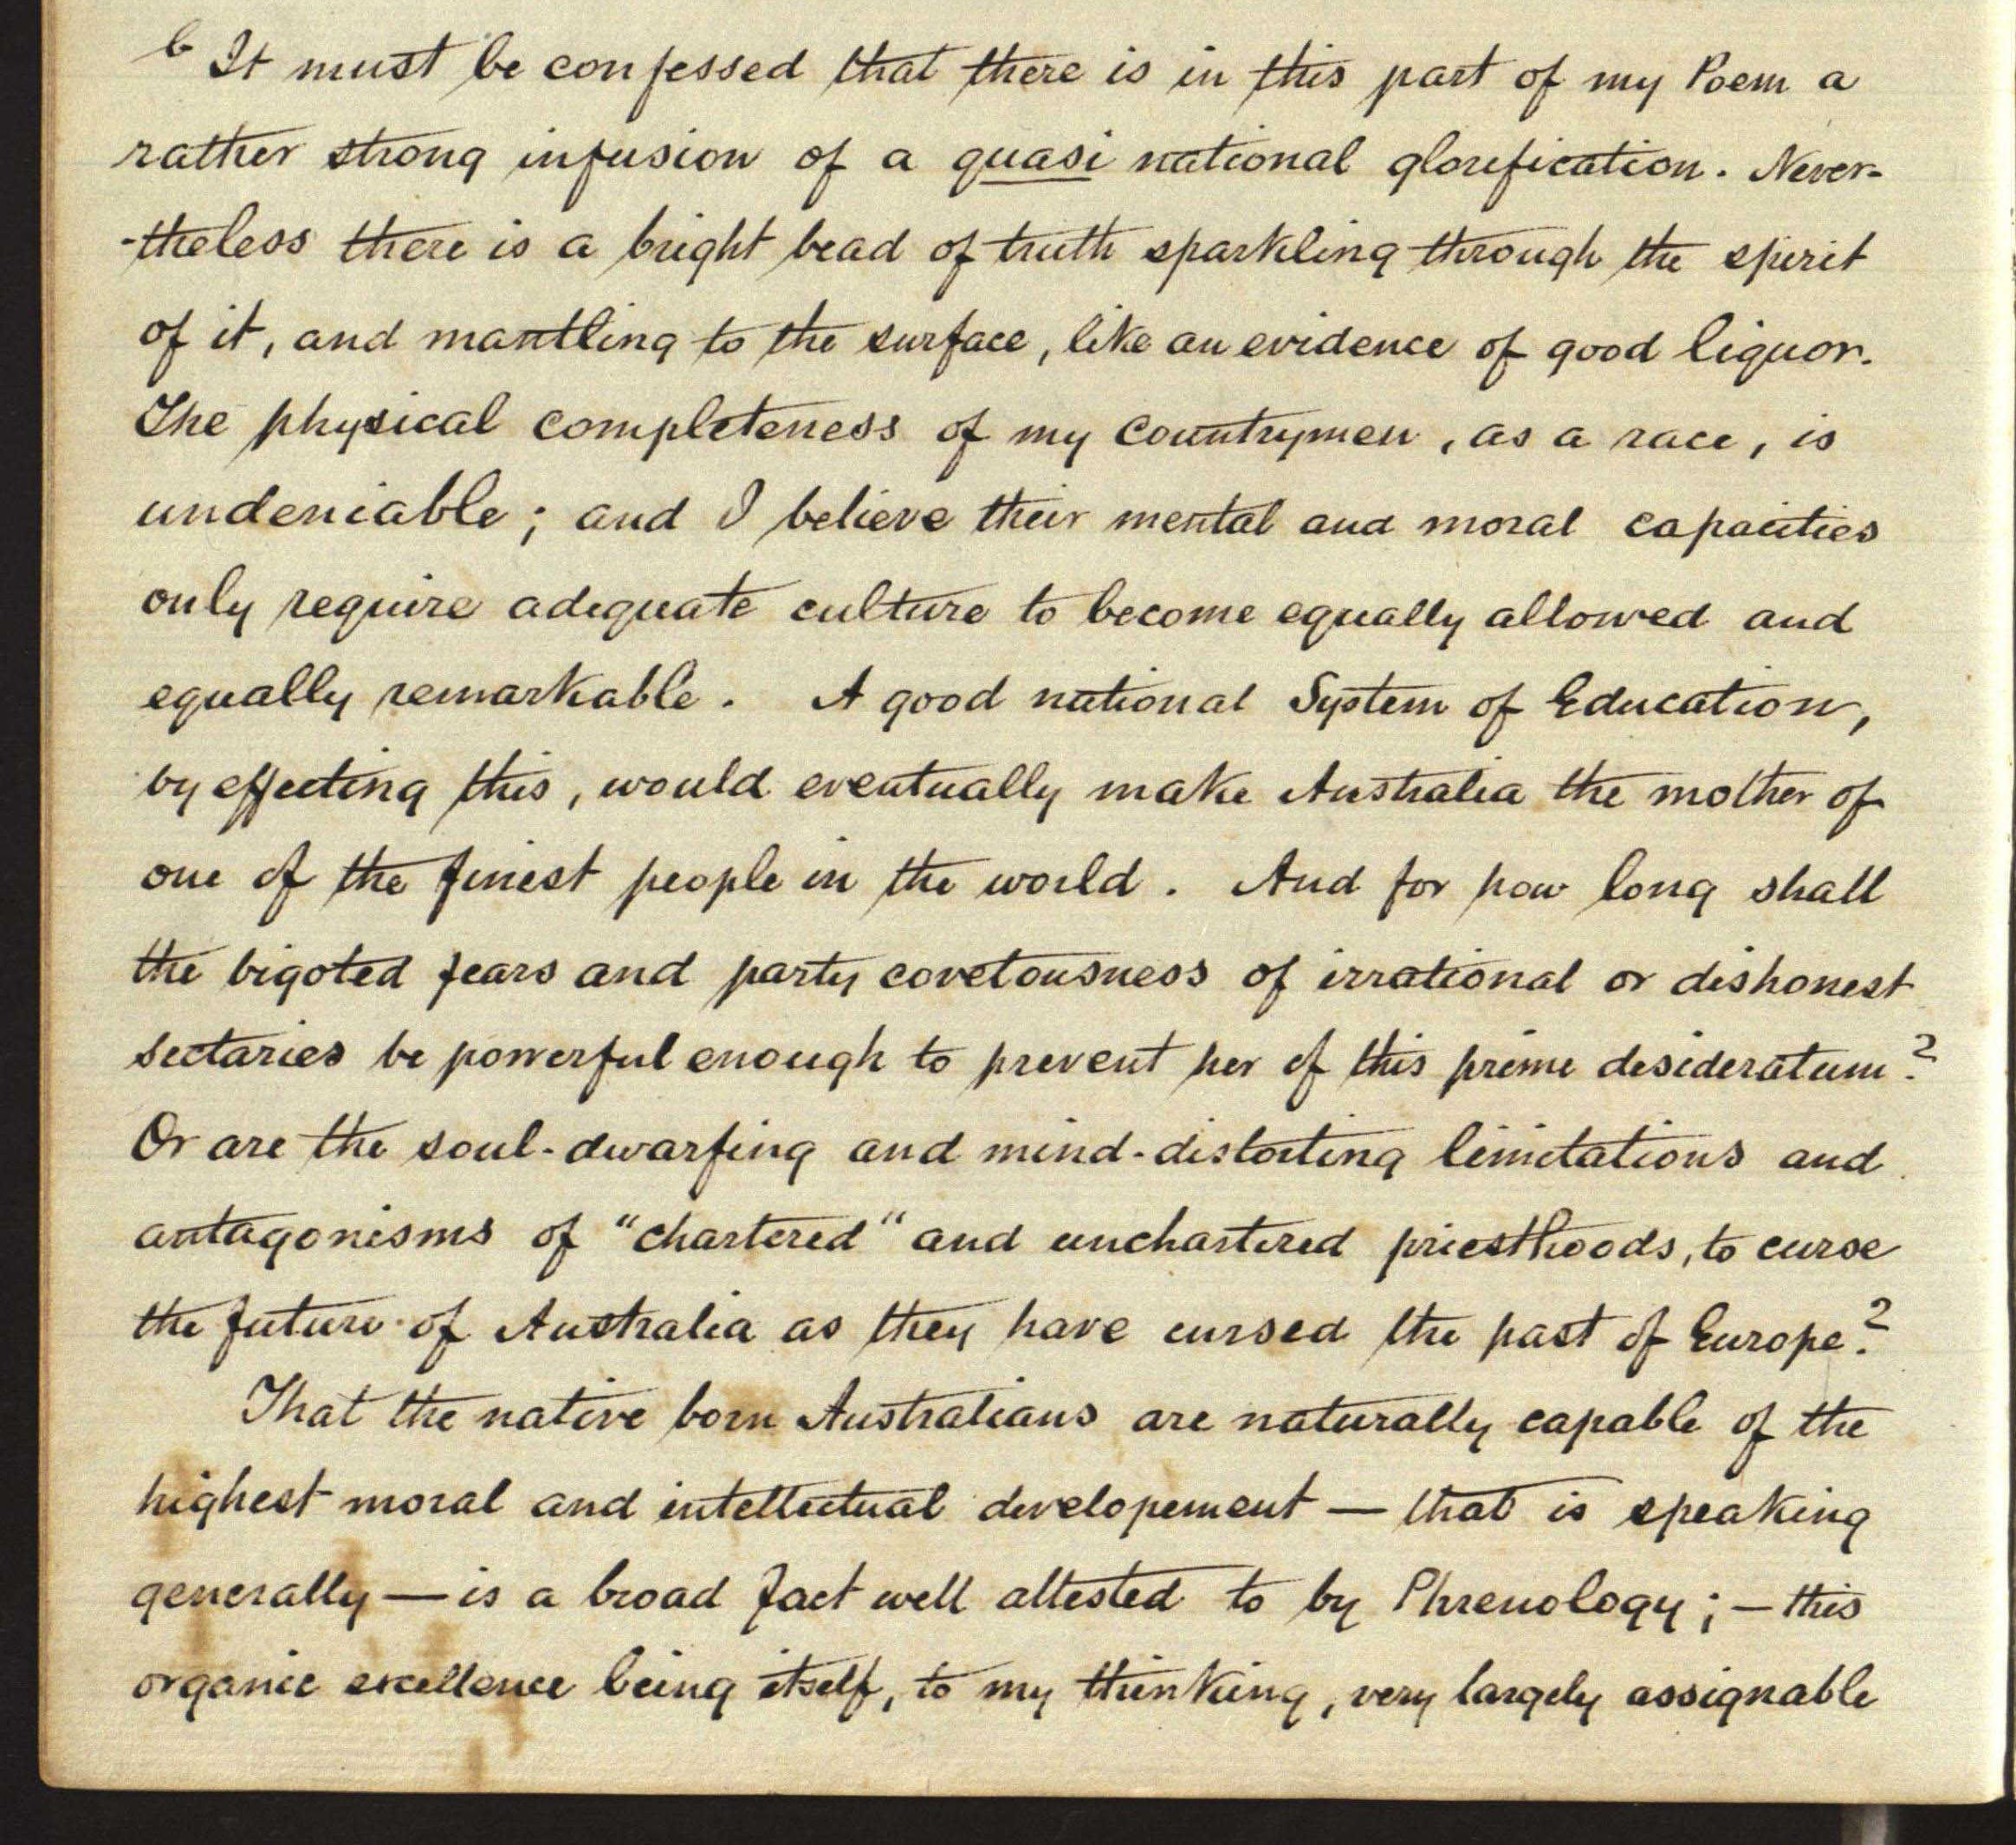 b It must be confessed that there is in this part of my Poem a
rather strong infusion of a quasi national glorification. Never-
-theless there is a bright bead of truth sparkling through the spirit
of it, and mantling to the surface, like an evidence of good liquor.
The physical completeness of my countrymen, as a race, is
undeniable; and I believe their mental and moral capacities
only require adequate culture to become equally allowed and
equally remarkable. A good national System of Education,
by effecting this, would eventually make Australia the mother of
one of the finest people in the world. And for how long shall
the bigoted fears and party covetousness of irrational or dishonest
sectaries be powerful enough to prevent her of this prime desideratum?
Or are the soul-dwarfing and mind-distorting limitations and
antagonisms of "chartered" and unchartered priesthoods, to curse
the future of Australia as they have cursed the past of Europe?
That the native born Australians are naturally capable of the
highest moral and intellectual developement — that is speaking
generally — is a broad fact well attested to by Phrenology; — this
organic excellence being itself, to my thinking, very largely assignable